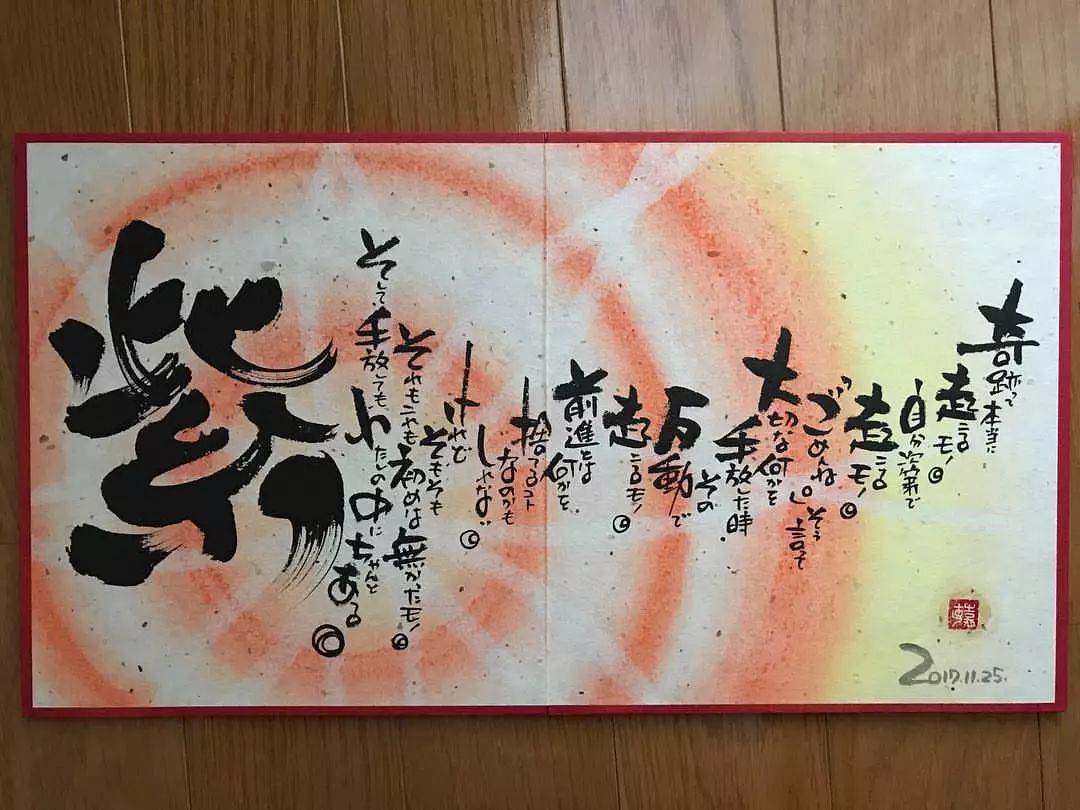 奇跡って本当に
起こるモノ。
自分次第で
起こるモノ。
「ごめんね。」そう言って
大切な何かを
手放した時、
その
反動で
起こるモノ。
前進とは
何かを、
捨てるコト
なのかも
しれない。
けれど
そもそも
それもこれも初めは無かったモノ。
そして、手放しても
わたしの中に
ちゃんと
ある。
2017.11.25.